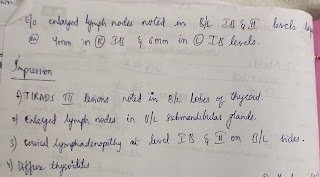 c/o enlarged lymph nodes noted in B/L IB & II levels
4mm in (R) IB & 6mm in (L) IB levels.
Impression
1) TIRADS III lesions noted in B/L lobes of thyroid
2) Enlarged lymph nodes in B/L submandibular glands.
3) cervical lymphadenopathy at level IB & II on B/L sides.
4) Diffuse thyroiditis